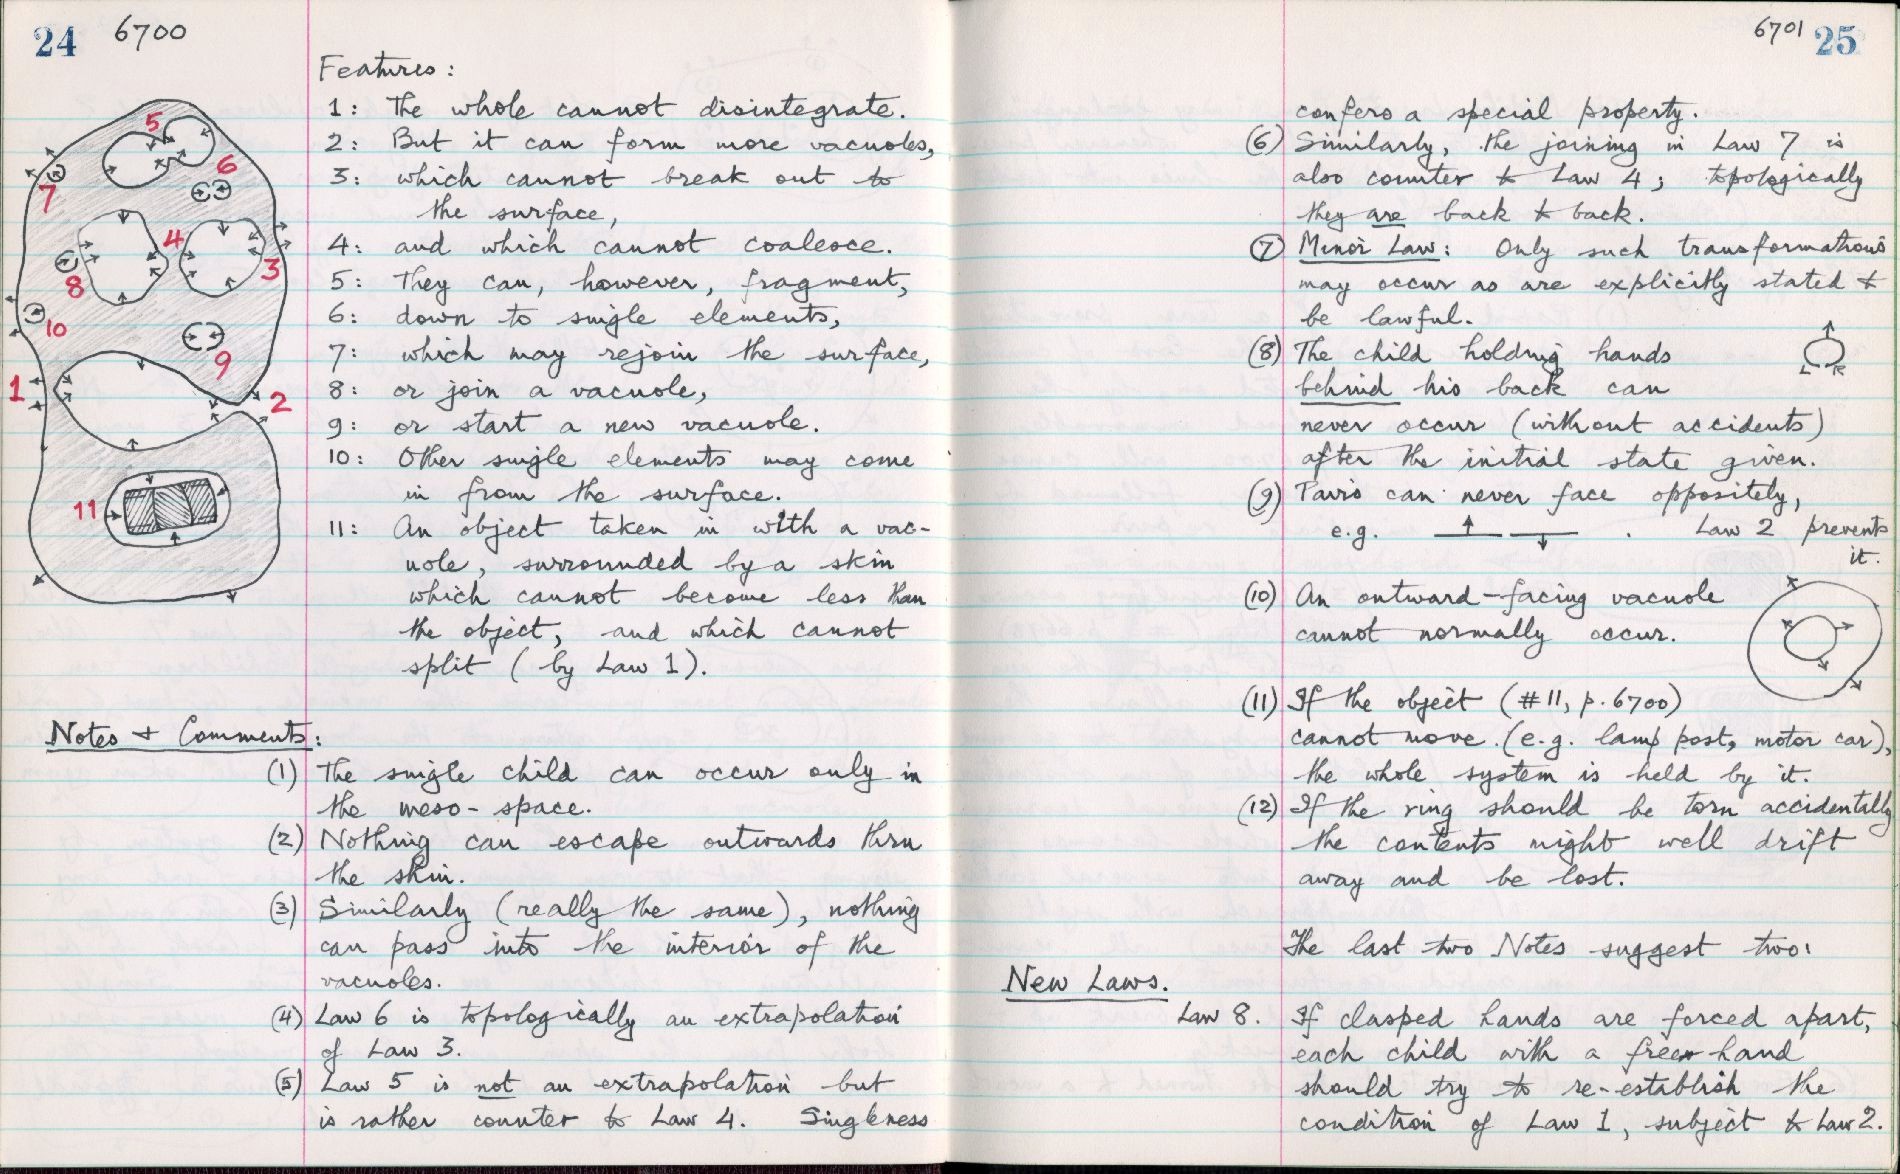 24 6700
Features:
1: The whole cannot disintegrate.
2: But it can form more vacuoles,
3: which cannot break out to
the surface,
4: and which cannot coalesce.
5: They can, however, fragment,
6: down to single elements,
7: which may rejoin the surface,
8: or join a vacuole,
9: or start a new vacuole.
10: Other single elements may come
in from the surface.
11: An object taken in with a vac-
uole, surrounded by a skin
which cannot become less than
the object, and which cannot
split (by Law 1).
5
6
7
4
3
8
10
9
1
2
11
Notes + Comments:
(1) The single child can occur only in
the meso-space.
(2) Nothing can escape outwards thru
the skin.
(3) Similarly (really the same), nothing
can pass into the interior of the
vacuoles.
(4) Law 6 is topologically an extrapolation
of Law 3.
(5) Law 5 is not an extrapolation but
is rather counter to Law 4. Singleness
6701 25
confers a special property.
(6) Similarly, the joining in Law 7 is
also counter to Law 4; topologically
they are back to back.
(7) Minor Law: Only such transformations
may occur as are explicitly stated &
be lawful.
(8) The child holding hands
behind his back can
never occur (without accidents)
after the initial state given.
L R
(9) Pairs can never face oppositely,
e.g. . Law 2 prevents
it.
(10) An outward-facing vacuole
cannot normally occur.
(11) If the object (#11, p. 6700)
cannot move (e.g. lamp post, motor car),
the whole system is held by it.
(12) If the ring should be torn accidentally
the contents might well drift
away and be lost.
The last two Notes suggest two:
New Laws.
Law 8. If clasped hands are forced apart,
each child with a free hand
should try to re-establish the
condition of Law 1, subject to Law 2.